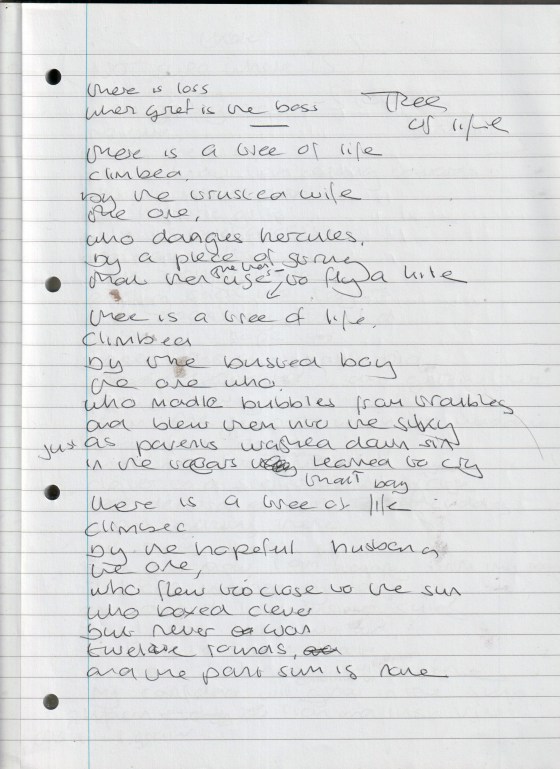 there is loss
when grief is the boss
Tree
of life
there is a tree of life
climbed.
by the trusted wife
the one,
who dangles hercules,
by a piece of string
that her
use to fly a kite
there is a tree of life.
climbed
by the busted boy
the one who.
who made bubbles from troubles
and blew them into the sky
just as parents washed down sin
in the
learned to cry
that boy
there is a tree of life
climbed
by the hopeful husband
the one,
who flew too close to the sun
who boxed clever
but never won
twelve rounds,
and the part sum is none